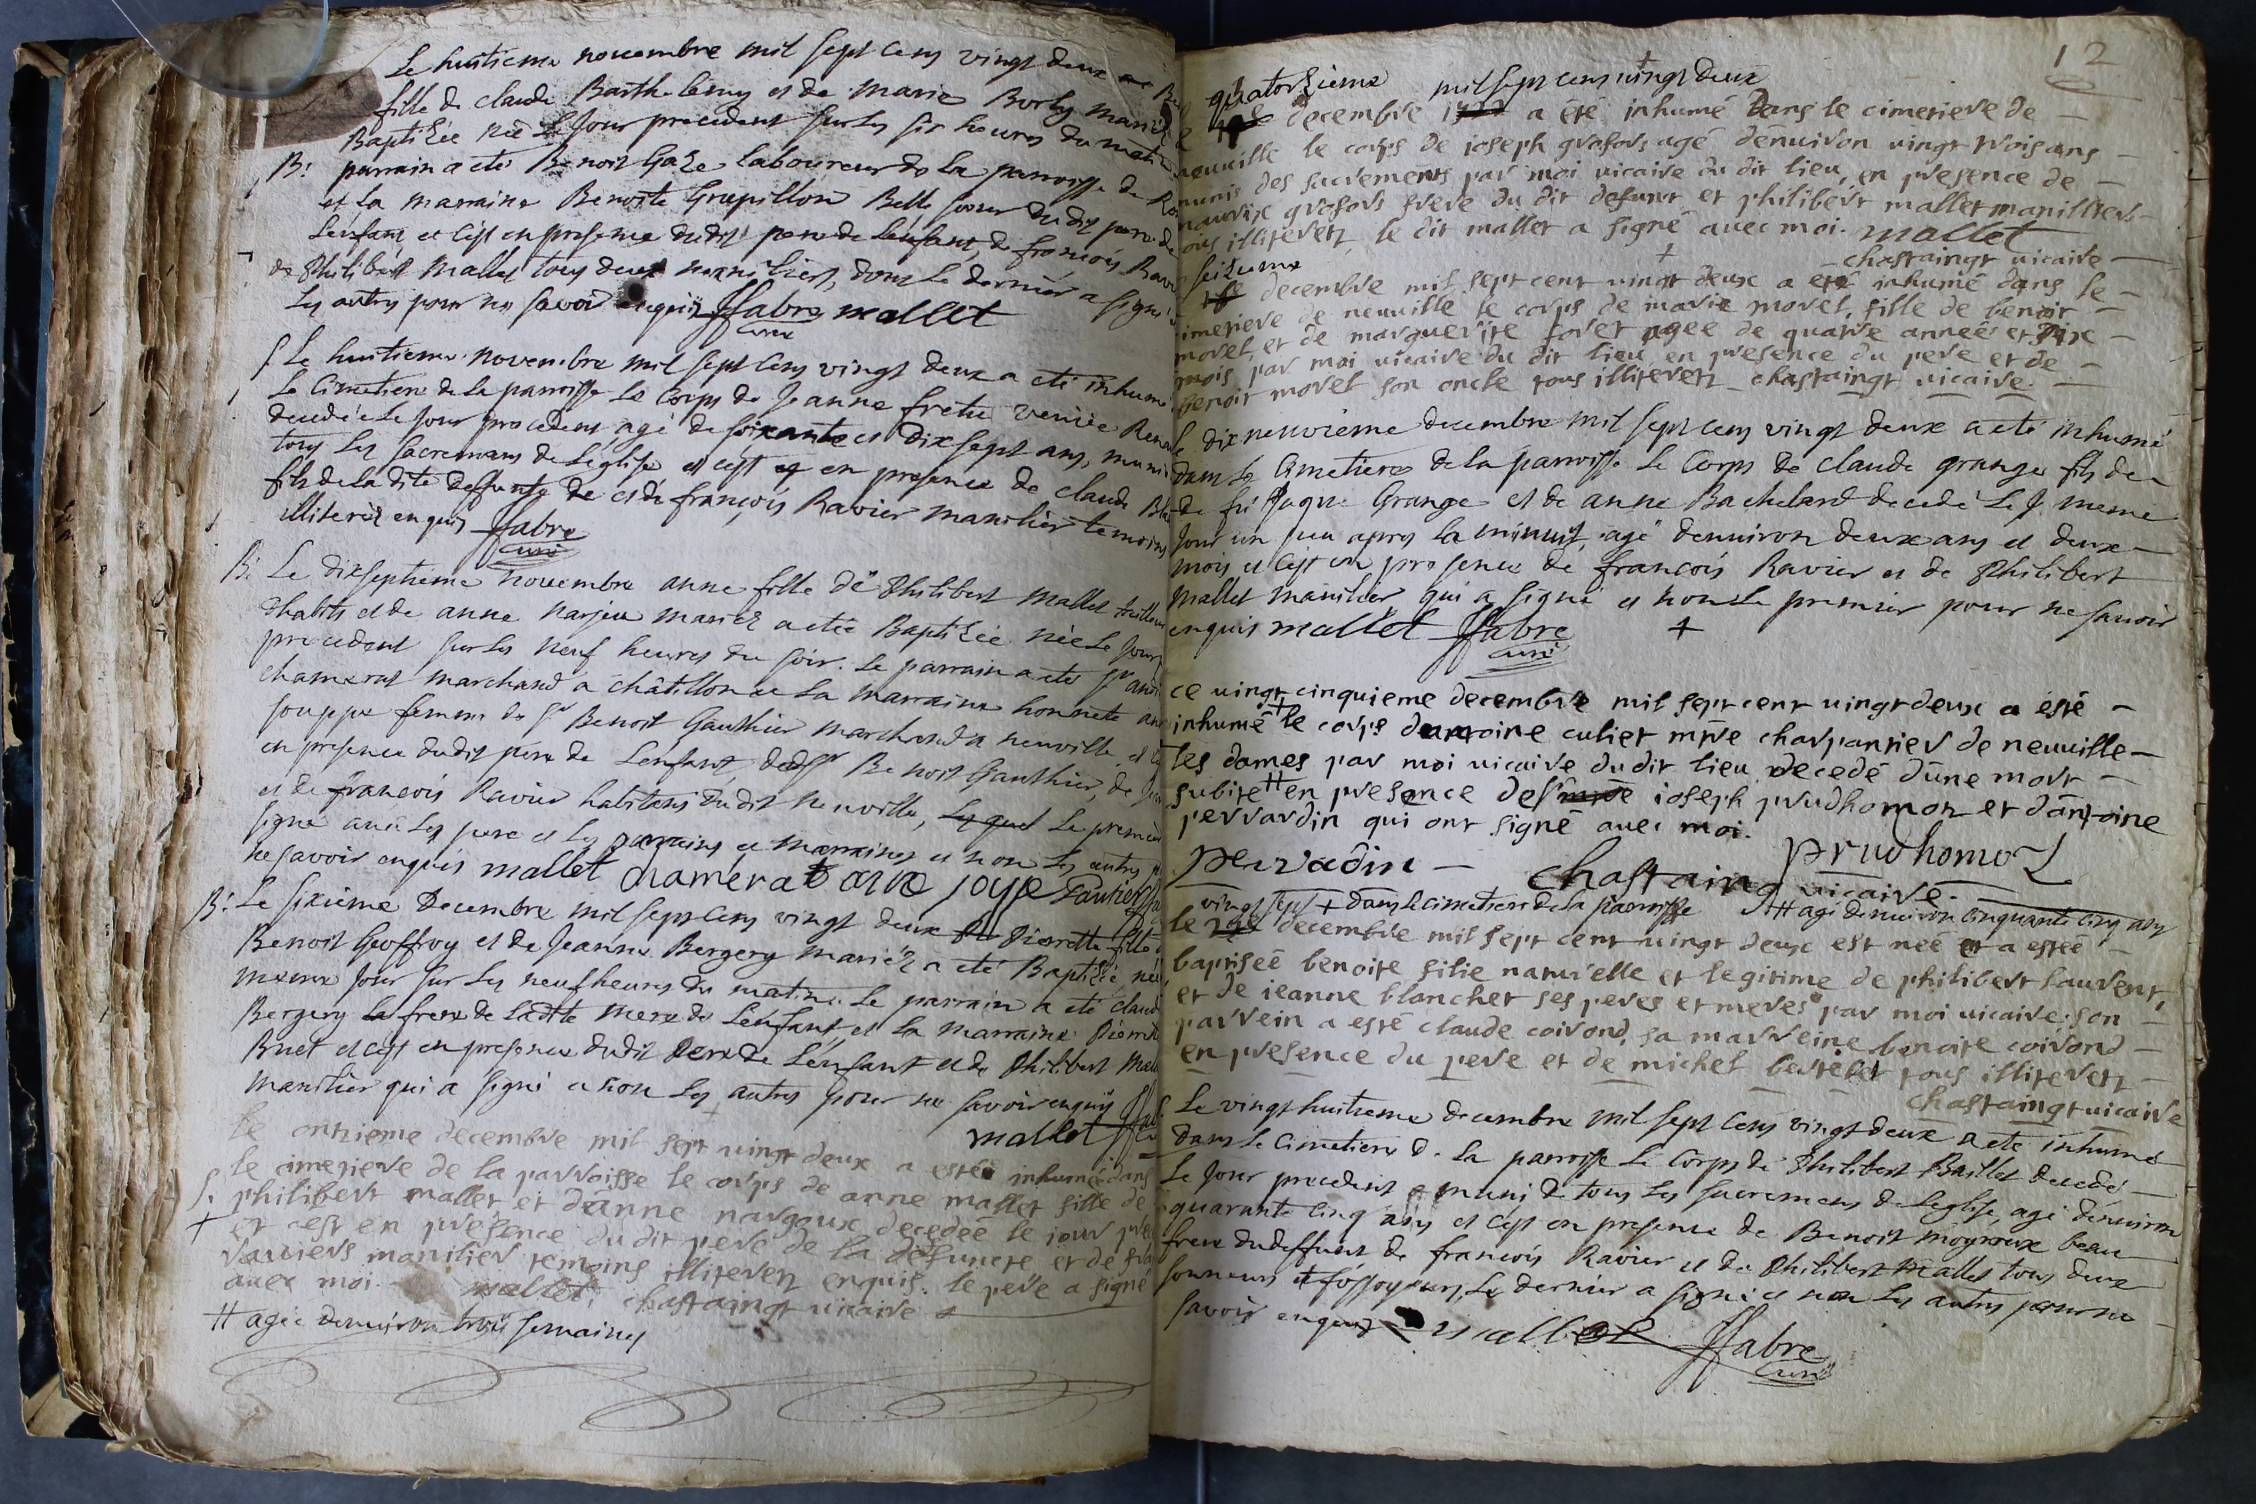 Le huitieme novembre mil sept cens vingt deux
fille de claude Barthelemy et de marie Borly mariéz
Baptisée née le Jour precedent sur les six heures du matin
B: parrain a eté Benoit Gaze laboureur de la parroisse de
et la marraine Benoite Grapillon Belle soeur dudit pere de
L'enfant et c'est en presence dudit pere de L'enfant, de francois Ravier
de Philibert Mallet tous deux maniliers, dont le dernier a signé
les autres pour ne savoir enquis ffabre mallet
curé
S Le huitieme novembre mil sept cens vingt deux a eté inhumé
Le Cimetiere de la parroisse le Corps de Jeanne fretie
decedée le Jour precedent agé de soixante et dix sept ans, munie
tous les sacremans de L'église et c'est en presence de claude
fils de la dite deffunte de et de françois Ravier manilier temoins
illiteréz enquis ffabre
curé
B: Le dixseptieme novembre anne fille de Philibert Mallet tailleur
d'habits et de anne narjeu mariéz a etée Baptisée née le Jour
precedent sur les neuf heures du soir. Le parrain a eté Sr
chamerat marchand a châtillon et la marraine honnete
Jouppe femme de Sr Benoit Gauthier marchand a neuville et
en presence dudit pere de L'enfant, dudSr Benoit Gauthier, de
et de francois Ravier habitans dudit neuville, lesquel le premier
signé avec les pere et les parrains et marraines et non les autres
ne savoir enquis mallet chamerat joupe Gautier
B: Le sixieme Decembre mil sept cens vingt deux Pierrette fille
Benoit Geoffroy et de Jeanne Bergery mariéz a eté Baptisée, née
meme jour sur les neuf heures du matin. Le parrain a eté claude
Bergery la frere de ladite mere de L'enfant, et la marraine Pierrette
Bruet et c'est en presence dudit Pere de L'enfant et de Philibert
manilier qui a signé et non les autres pour ne savoir enquis
mallet
le onzieme decembre mil sept vingt deux a estée inhumée dans
le cimetiere de la parroisse le corps de anne mallet fille de
S. philibert mallet et deanne nargoux decedée le jour
+ et cest en presence du dit pere de la defuncte et de
ravviers manilier temoins illiterez enquis. le pere a signé
avec moi mallet chastaingt vicaire
# agée denuiron trois semaines
12
quatorzieme mil sept cens vingt deux
decembre 1722 a été inhumé dans le cimetiere de
neuville le corps de joseph grosfors agé denuiron vingt trois ans
munis des sacrements par moi vicaire du dit lieu, en presence de
maurix grosfors frere du dit defunt et philibert mallet manilliers
illiterez, le dit mallet a signé avec moi. mallet
chastaingt vicaire
seizieme
decembre mil sept cent vingt deux a eté inhumé dans le
cimetiere de neuville le corps de marie morel, fille de benoir
morel, et de marguerite foret agée de quatre anneés et dix
mois par moi vicaire du dit lieu en presence du pere et de
benoir morel son oncle tous illiterez chastaingt vicaire.
Le dix neuvième decembre mil sept cens vingt deux a eté inhumé
dans le Cimetiere de la parroisse Le Corps de claude grange fils de
de fû Jaque Grange et de anne Bachelard decedé Le J meme
Jour un peu apres la minuit, agé denuiron deux ans et deux
mois et c'est en presence de francois Ravier et de Philibert
Mallet manilier qui a signé et non le premier pour ne savoir
enquis mallet ffabre +
curé
ce vingt cinquieme decembre mil sept cent vingt deux a esté
inhumé + le corps dantoine culiet mtre charpantier de neuville
les dames par moi vicaire du dit lieu decedé dune mort
subite # en presence de Sr joseph prudhomoz et dantoine
pervardin qui ont signé avec moi.
pervadin prudhomoz
chastaing vicaire
vingt sept + dans le cimetiere de la parroisse # agé denuiron cinquante cinq ans
le decembre mil sept cent vingt deux est neé et a esteé
baptiseé benoite filie naturelle et legitime de philibert lauvent,
et de jeanne blanchet ses peres et meres par moi vicaire: son
parvein a esté claude coivond, sa marveine benoite coivond
en presence du pere et de michel berthelet tous illiterez
chastaingt vicaire
Le vingt huitieme decembre mil sept cens vingt deux a eté inhumé
dans le Cimetiere de la parroisse Le Corps de Philibert Baillet decedé
Le Jour precedent muni de tous les sacremens de L'eglise, agé denuiron
quarante cinq ans et c'est en presence de Benoit moyroux beau
frere dudeffunt de francois Ravier et de Philibert Mallet tous deux
sonneurs et fossoyeurs, Le dernier a signé et non les autres pour ne
savoir enquis mallet ffabre
curé